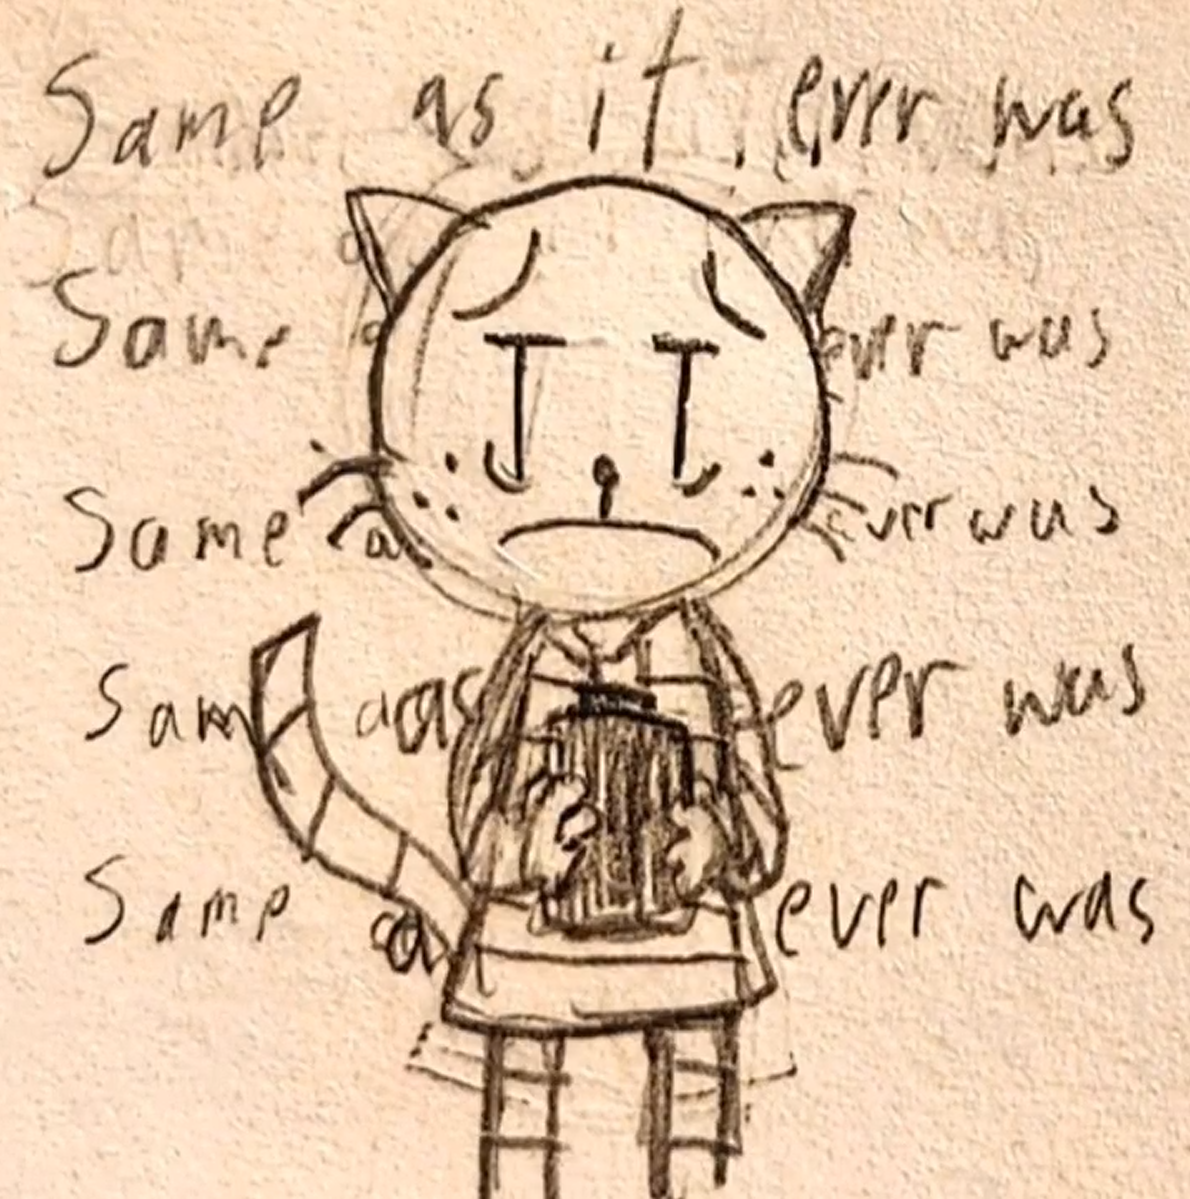 Same as it ever was
Same ever was
Same a ever was
Sam as ever was
Same a ever was